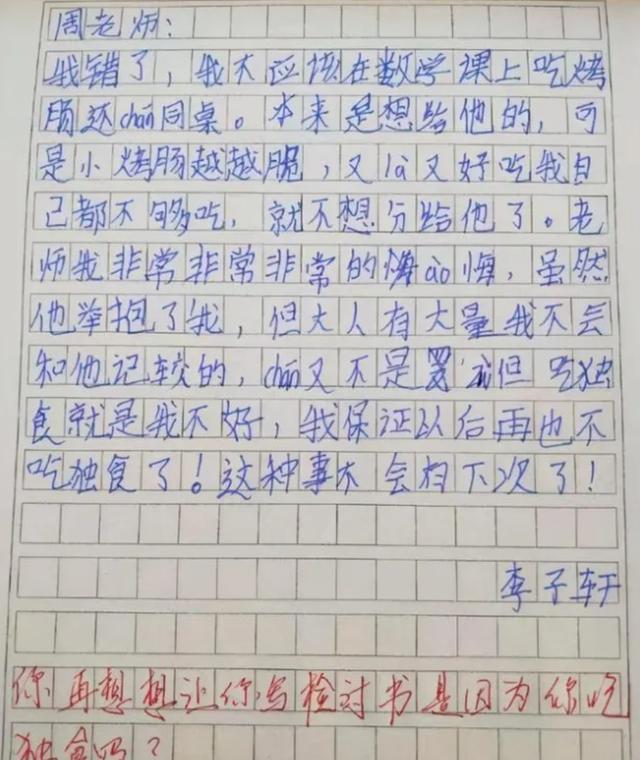 周老师：
我错了，我不应该在数学课上吃烤
肠还chán同桌。本来是想给他的，可
是小烤肠越越脆，又là又好吃我自
己都不够吃，就不想分给他了。老
师我非常非常非常的懊ào悔，虽然
他举抱了我，但大人有大量我不会
和他记较的，chán又不是罪 但 吃独
食就是我不好，我保证以后再也不
吃独食了！这种事不会有下次了！
李子轩
你再想想让你写检讨书是因为你吃
独食吗？